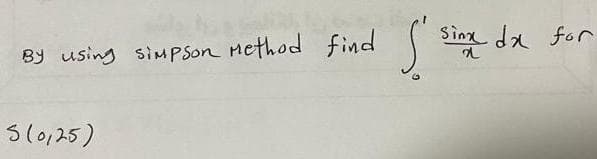 By using simpson Method find ∫₀¹ sinx/x dx for
S(0,25)